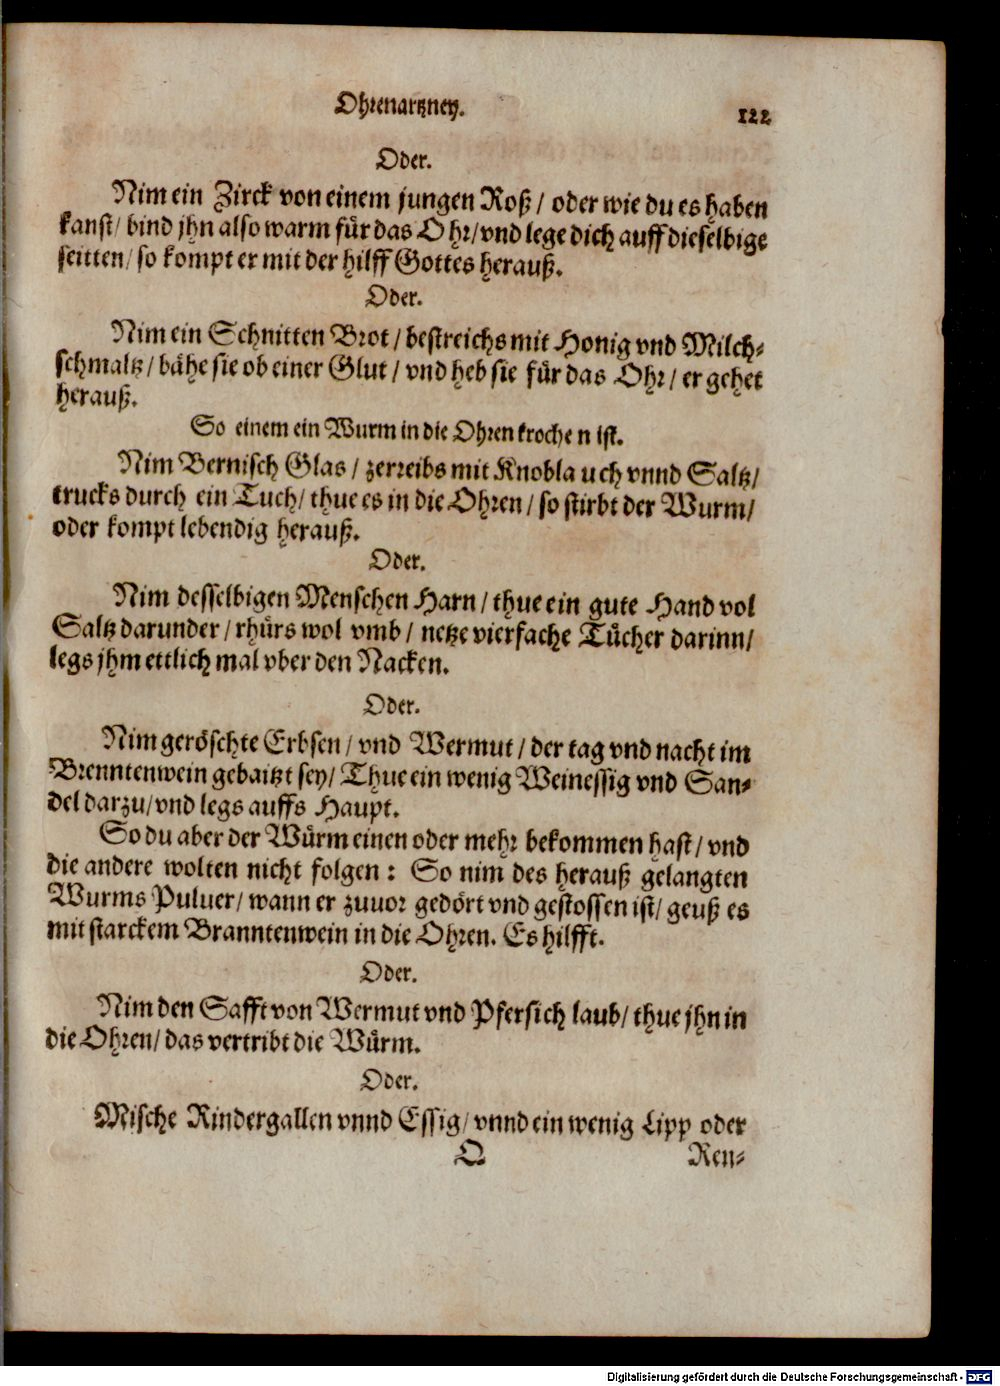 Ohrenartzney.
122
Oder.
Nim ein Zirck von einem jungen Roß / oder wie du es haben
kanst / bind jhn also warm für das Ohr / vnd lege dich auff dieselbige
seitten / so kompt er mit der hilff Gottes herauß.
Oder.
Nim ein Schnitten Brot / bestreichs mit Honig vnd Milch-
schmaltz / bähe sie ob einer Glut / vnd heb sie für das Ohr / er gehet
herauß.
So einem ein Wurm in die Ohren krochen ist.
Nim Bernisch Glas / zerreibs mit Knoblauch vnnd Saltz /
trucks durch ein Tuch / thue es in die Ohren / so stirbt der Wurm /
oder kompt lebendig herauß.
Oder.
Nim desselbigen Menschen Harn / thue ein gute Hand vol
Saltz darunder / rhürs wol vmb / netze vierfache Tücher darinn /
legs jhm ettlich mal vber den Nacken.
Oder.
Nim geröschte Erbsen / vnd Wermut / der tag vnd nacht im
Brenntenwein gebaitzt sey / Thue ein wenig Weinessig vnd San-
del darzu / vnd legs auffs Haupt.
So du aber der Würm einen oder mehr bekommen hast / vnd
die andere wolten nicht folgen : So nim des herauß gelangten
Wurms Puluer / wann er zuuor gedört vnd gestossen ist / geuß es
mit starckem Branntenwein in die Ohren. Es hilfft.
Oder.
Nim den Safft von Wermut vnd Pfersich laub / thue jhn in
die Ohren / das vertribt die Würm.
Oder.
Mische Rindergallen vnnd Essig / vnnd ein wenig Lipp oder
Q
Ren-
Digitalisierung gefördert durch die Deutsche Forschungsgemeinschaft - DFG